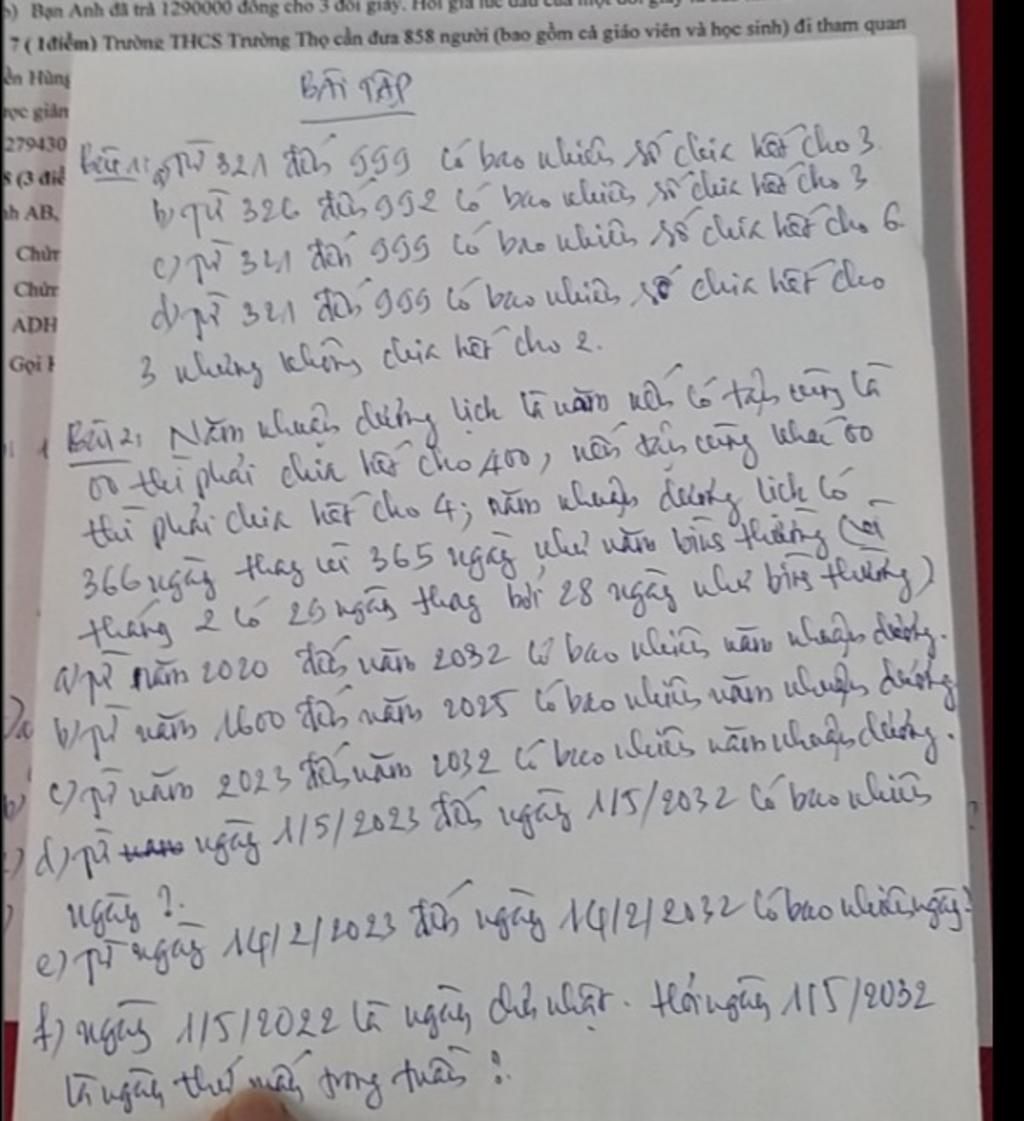 b) Bạn Anh đã trả 1290000 đồng cho 3 đôi giày. Hỏi giá lúc đầu của một đôi giày
7 ( 1điểm) Trường THCS Trường Thọ cần đưa 858 người (bao gồm cả giáo viên và học sinh) đi tham quan
ền Hùng
ược giản
279430
8 (3 điể
nh AB,
Chứn
Chứn
ADH
Gọi
BÀI TẬP
Bài 1: a) Từ 321 đến 999 có bao nhiêu số chia hết cho 3
b) Từ 326 đến 992 có bao nhiêu số chia hết cho 3
c) Từ 321 đến 999 có bao nhiêu số chia hết cho 6
d) Từ 321 đến 999 có bao nhiêu số chia hết cho
3 nhưng không chia hết cho 2.
Bài 2: Năm nhuận dương lịch là năm nếu có tận cùng là
00 thì phải chia hết cho 400, nếu tận cùng khác 00
thì phải chia hết cho 4; năm nhuận dương lịch có
366 ngày thay vì 365 ngày như năm bình thường (với
tháng 2 có 29 ngày thay bởi 28 ngày như bình thường)
a) Từ năm 2020 đến năm 2032 có bao nhiêu năm nhuận dương.
b) Từ năm 1600 đến năm 2025 có bao nhiêu năm nhuận dương
c) Từ năm 2023 đến năm 2032 có bao nhiêu năm nhuận dương.
d) Từ ngày 1/5/2023 đến ngày 1/5/2032 có bao nhiêu
ngày ?
e) Từ ngày 14/2/2023 đến ngày 14/2/2032 có bao nhiêu ngày?
f) Ngày 1/5/2022 là ngày chủ nhật. Hỏi ngày 1/5/2032
là ngày thứ mấy trong tuần ?